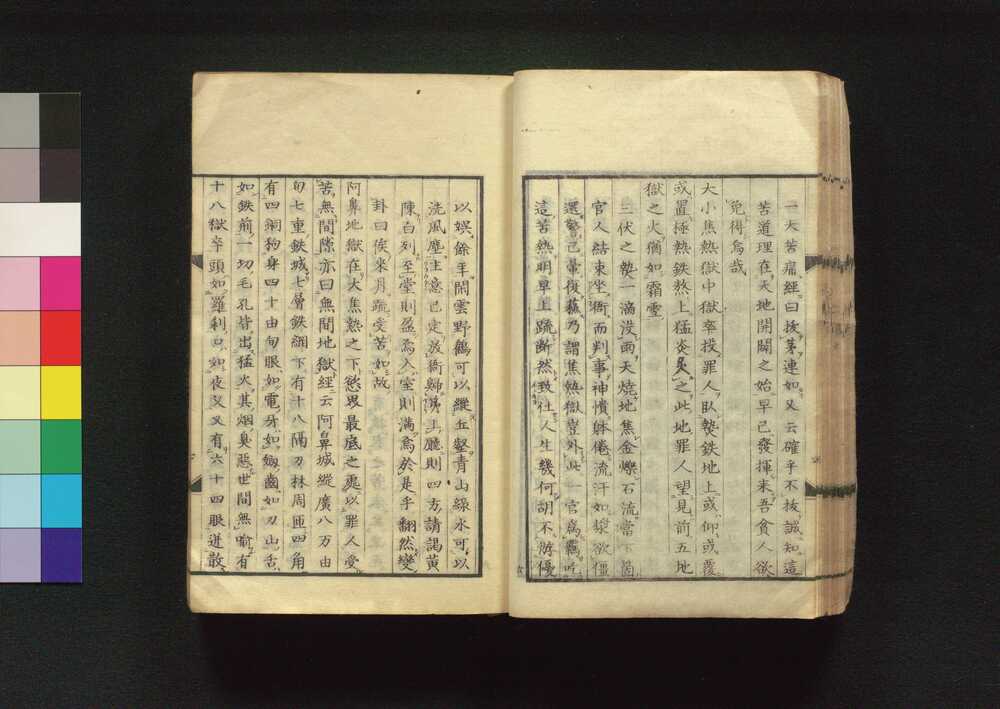 一大苦痛經曰拔茅連如又云確乎不拔誠知這
苦道理在天地開闢之始早已發揮來吾貪人欲
免得焉哉
大小焦熱獄中獄卒投罪人臥熱鉄地上或仰或覆
或置極熱鉄熬上猛炎炙之此地罪人望見前五地
獄之火猶如霜雪
三伏之熱一滴沒雨天燒地焦金爍石流當下箇
官人結束坐衙而判事神憒躰倦流汗如漿欲僵
還驚已暈復蘇乃謂焦熱獄豈外此一官爲羈吁
這苦熱明早上疏断然致仕人生幾何胡不游優
以娯餘年閑雲野鶴可以縱丘壑青山綠水可以
洗風塵主意已定放衙歸第上廳則四方請謁黄
陳白列至堂則盈焉入室則満焉於是乎翻然變
卦曰俟来月疏受苦如故
阿鼻地獄在大焦熱之下慾界最底之處以罪人受
苦無間隙亦曰無間地獄經云阿鼻城縱廣八万由
旬七重鉄城七層鉄網下有十八隔刀林周匝四角
有四銅狗身四十由旬眼如電牙如劔齒如刀山舌
如鉄箭一切毛孔皆出猛火其烟臭惡世間無喩有
十八獄卒頭如羅刹口如夜叉又有六十四眼迸散